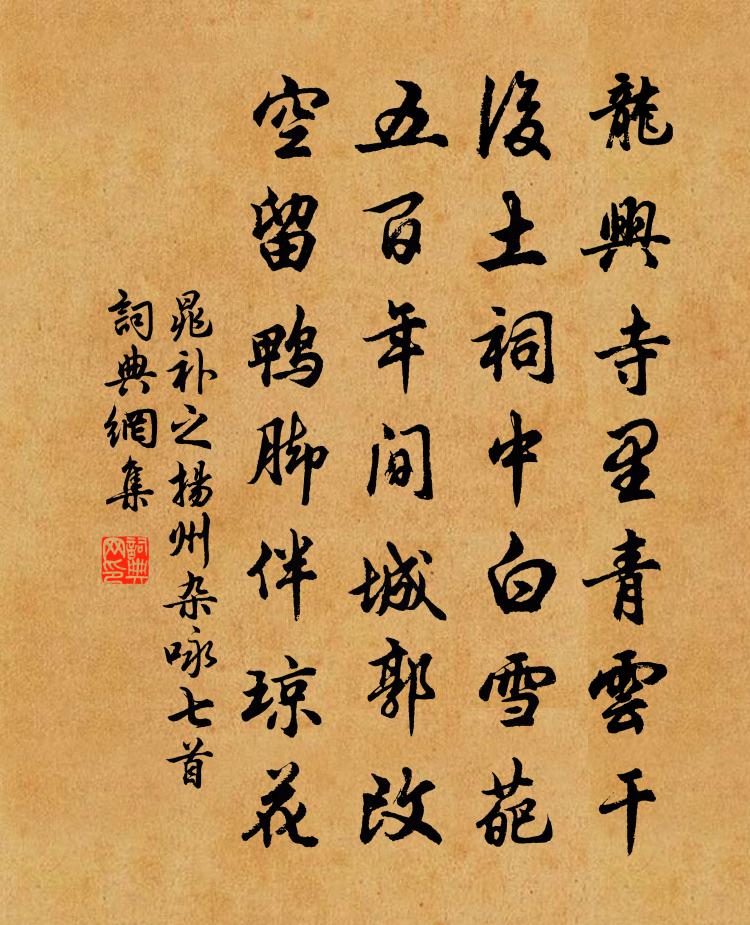 龍興寺里青雲干
後土祠中白雪葩
五百年间城郭改
空留鴨脚伴琼花
晁补之揚州杂咏七首
詞典網集
詞典网印